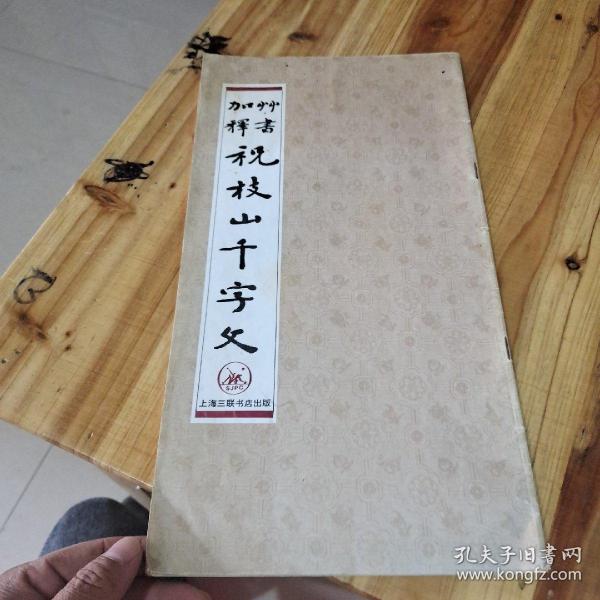 艸書
加釋
祝枝山千字文
SJPC
上海三联书店出版
孔夫子旧書网
www.kongfz.com